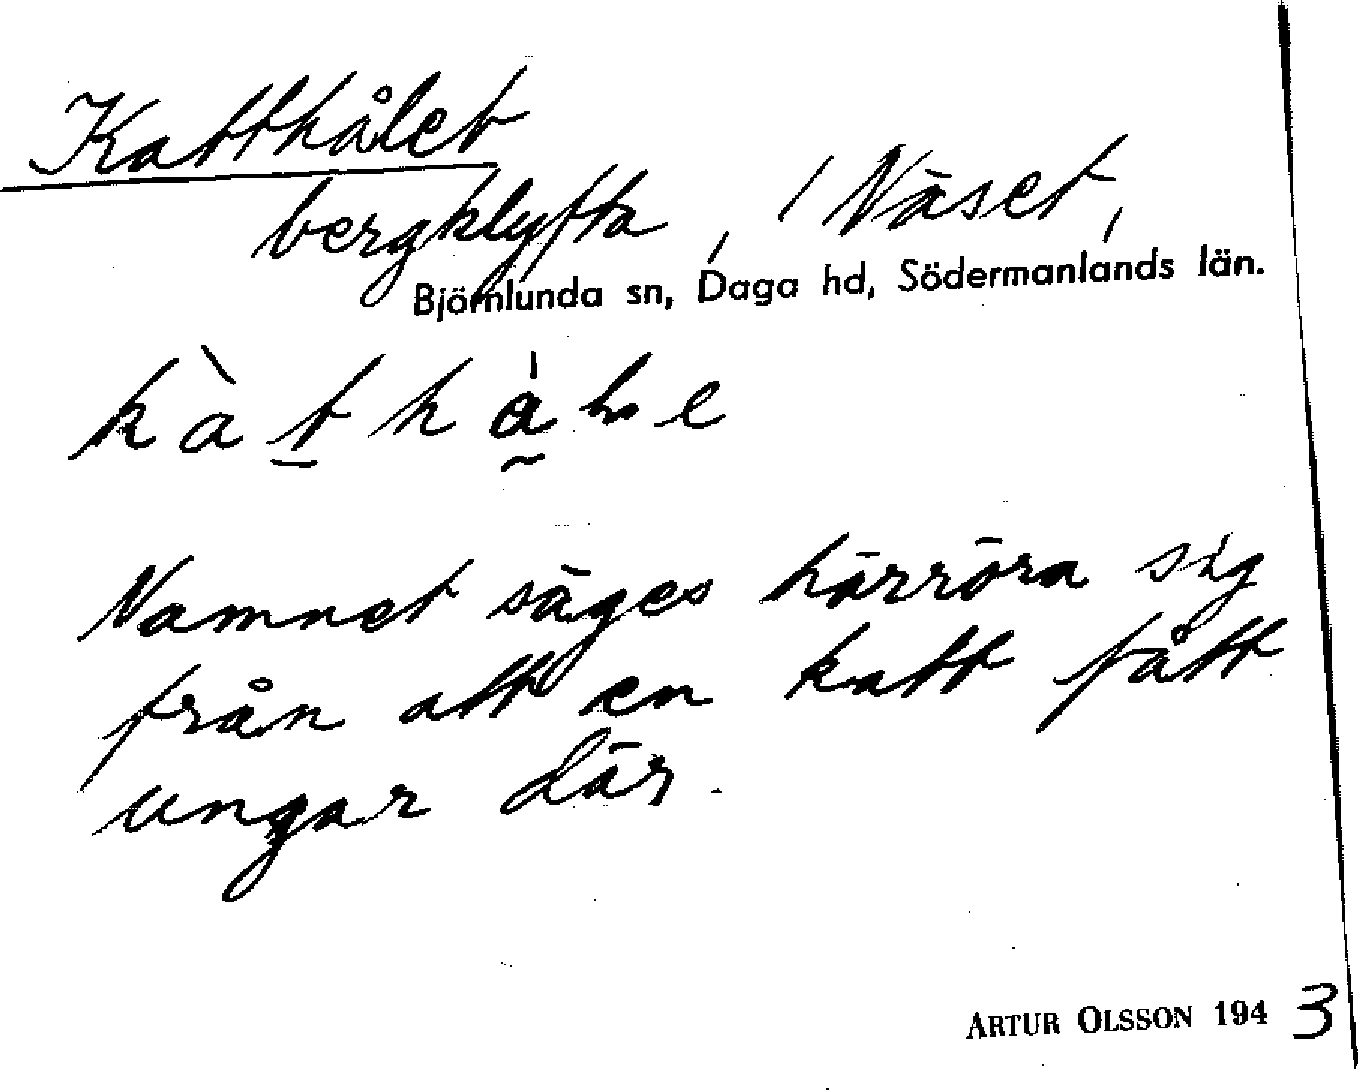 Katthålet
bergklyfta, / Näset,
Björnlunda sn, Daga hd, Södermanlands län.
Namnet säges härröra sig
från att en katt fått
ungar där.
ARTUR OLSSON 1943